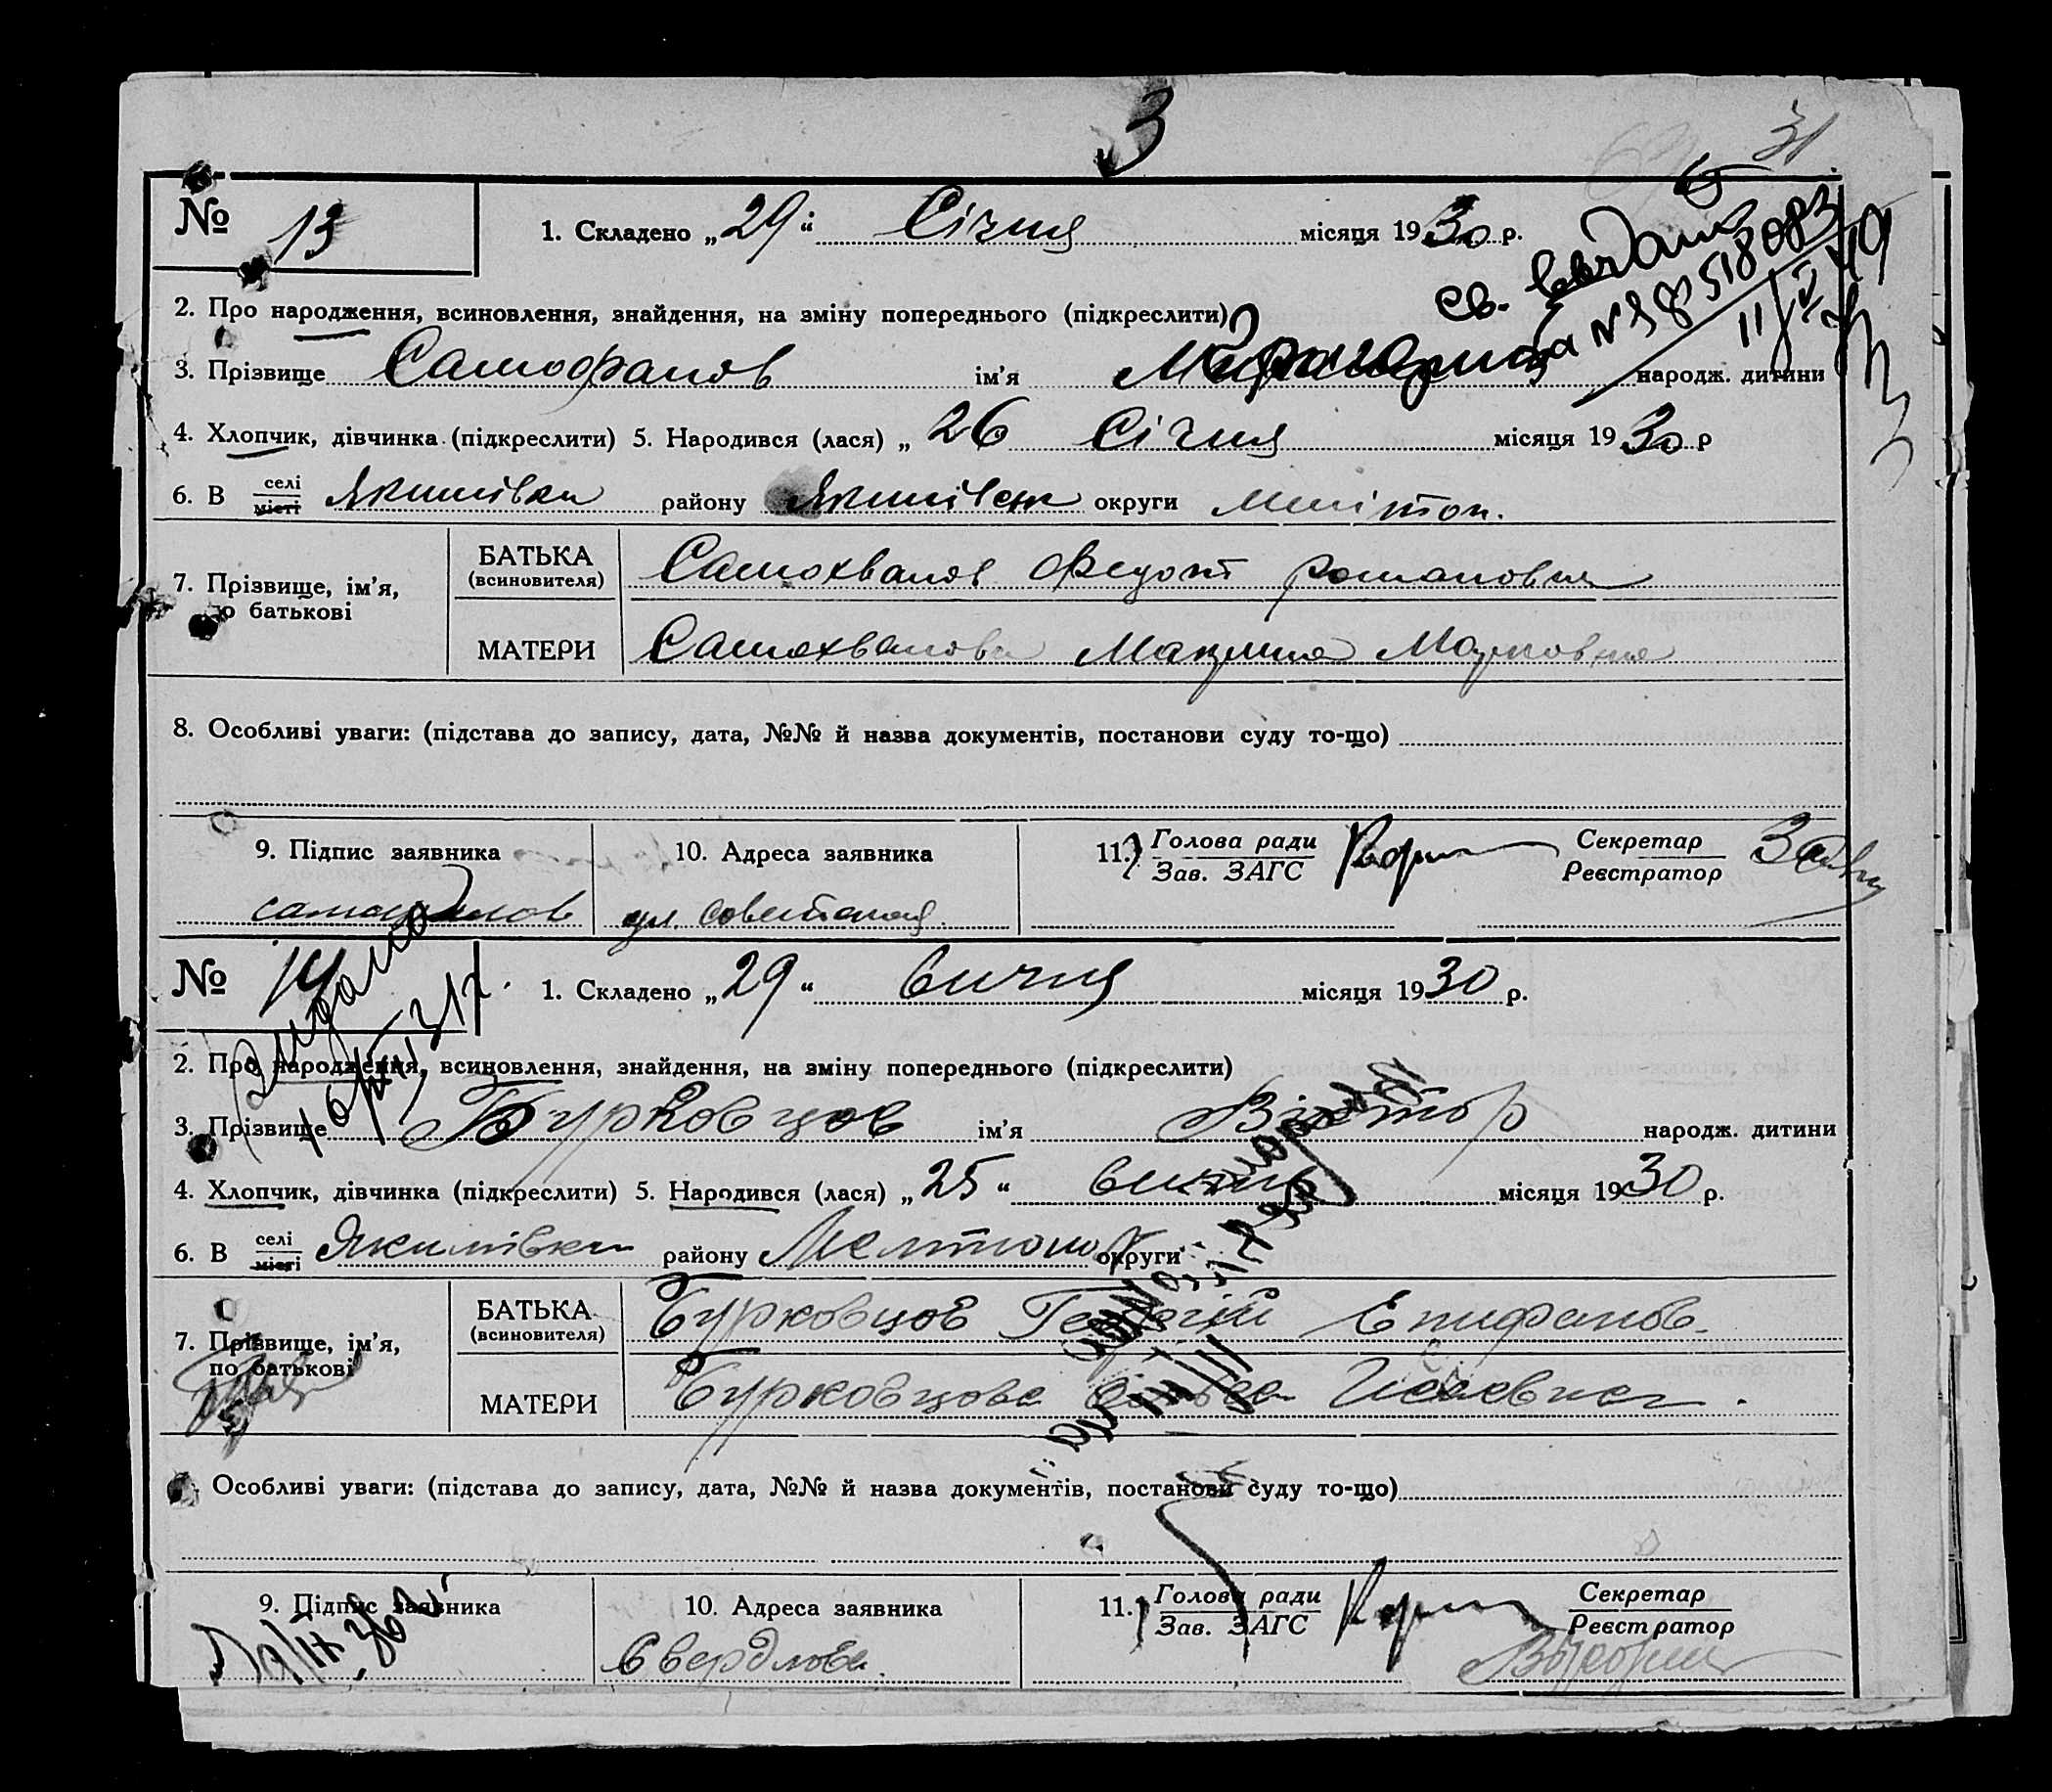 3
31
№ 13
1. Складено „29“ Січня місяця 1930 р.
св.
№
518083
2. Про народження, всиновлення, знайдення, на зміну попереднього (підкреслити)
3. Прізвище Самофалов ім’я народж. дитини
4. Хлопчик, дівчинка (підкреслити) 5. Народився (лася) „26 Січня місяця 1930 р
6. В селі місті Якимівки району Якимівськ округи
7. Прізвище, ім’я, по батькові
БАТЬКА (всиновителя) Самохвалов Федот Романович
МАТЕРИ Самохвалова Макрина Марковна
8. Особливі уваги: (підстава до запису, дата, №№ й назва документів, постанови суду то-що)
9. Підпис заявника 10. Адреса заявника 11. Голова ради Зав. ЗАГС Секретар Реєстратор
ул. Советская
№ 14
1. Складено „29“ сичня місяця 1930 р.
Видано
2. Про народження, всиновлення, знайдення, на зміну попереднього (підкреслити)
3. Прізвище Бурковцов ім’я Віктор народж. дитини
4. Хлопчик, дівчинка (підкреслити) 5. Народився (лася) „25“ сичня місяця 1930 р.
6. В селі місті Якимівки району округи
7. Прізвище, ім’я, по батькові
БАТЬКА (всиновителя) Бурковцов Георгій Епифанов.
МАТЕРИ Бурковцова
Особливі уваги: (підстава до запису, дата, №№ й назва документів, постанови суду то-що)
9. Підпис заявника 10. Адреса заявника 11. Голова ради Зав. ЗАГС Секретар Реєстратор
Свердлова.